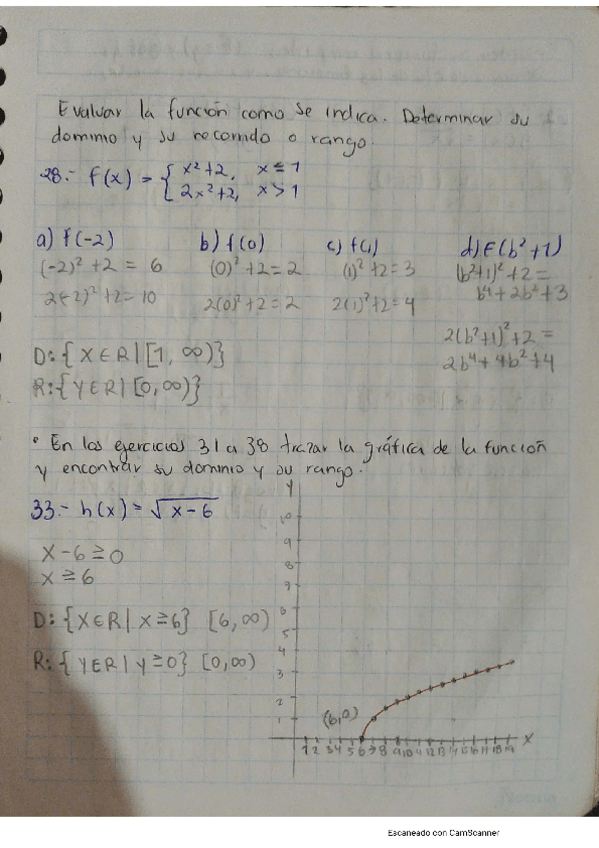 Evaluar la función como se indica. Determinar su
dominio y su recorrido o rango.
28.- f(x) = { x² + 2, x ≤ 1
2x² + 2, x > 1
a) f(-2) b) f(0) c) f(1) d) f(b² + 1)
(-2)² + 2 = 6 (0)² + 2 = 2 (1)² + 2 = 3 (b²+1)² + 2 =
b⁴ + 2b² + 3
2(-2)² + 2 = 10 2(0)² + 2 = 2 2(1)² + 2 = 4
2(b²+1)² + 2 =
2b⁴ + 4b² + 4
D: {X∈R | [1, ∞)}
R: {Y∈R | [0, ∞)}
• En los ejercicios 31 a 38 trazar la gráfica de la función
y encontrar su dominio y su rango.
33.- h(x) = √x - 6
x - 6 ≥ 0
x ≥ 6
D: {X∈R | x ≥ 6} [6, ∞)
R: {Y∈R | y ≥ 0} [0, ∞)
Y
10
9
8
7
6
5
4
3
2
1
(6,0)
1 2 3 4 5 6 7 8 9 10 11 12 13 14 15 16 17 18 19 X
Escaneado con CamScanner